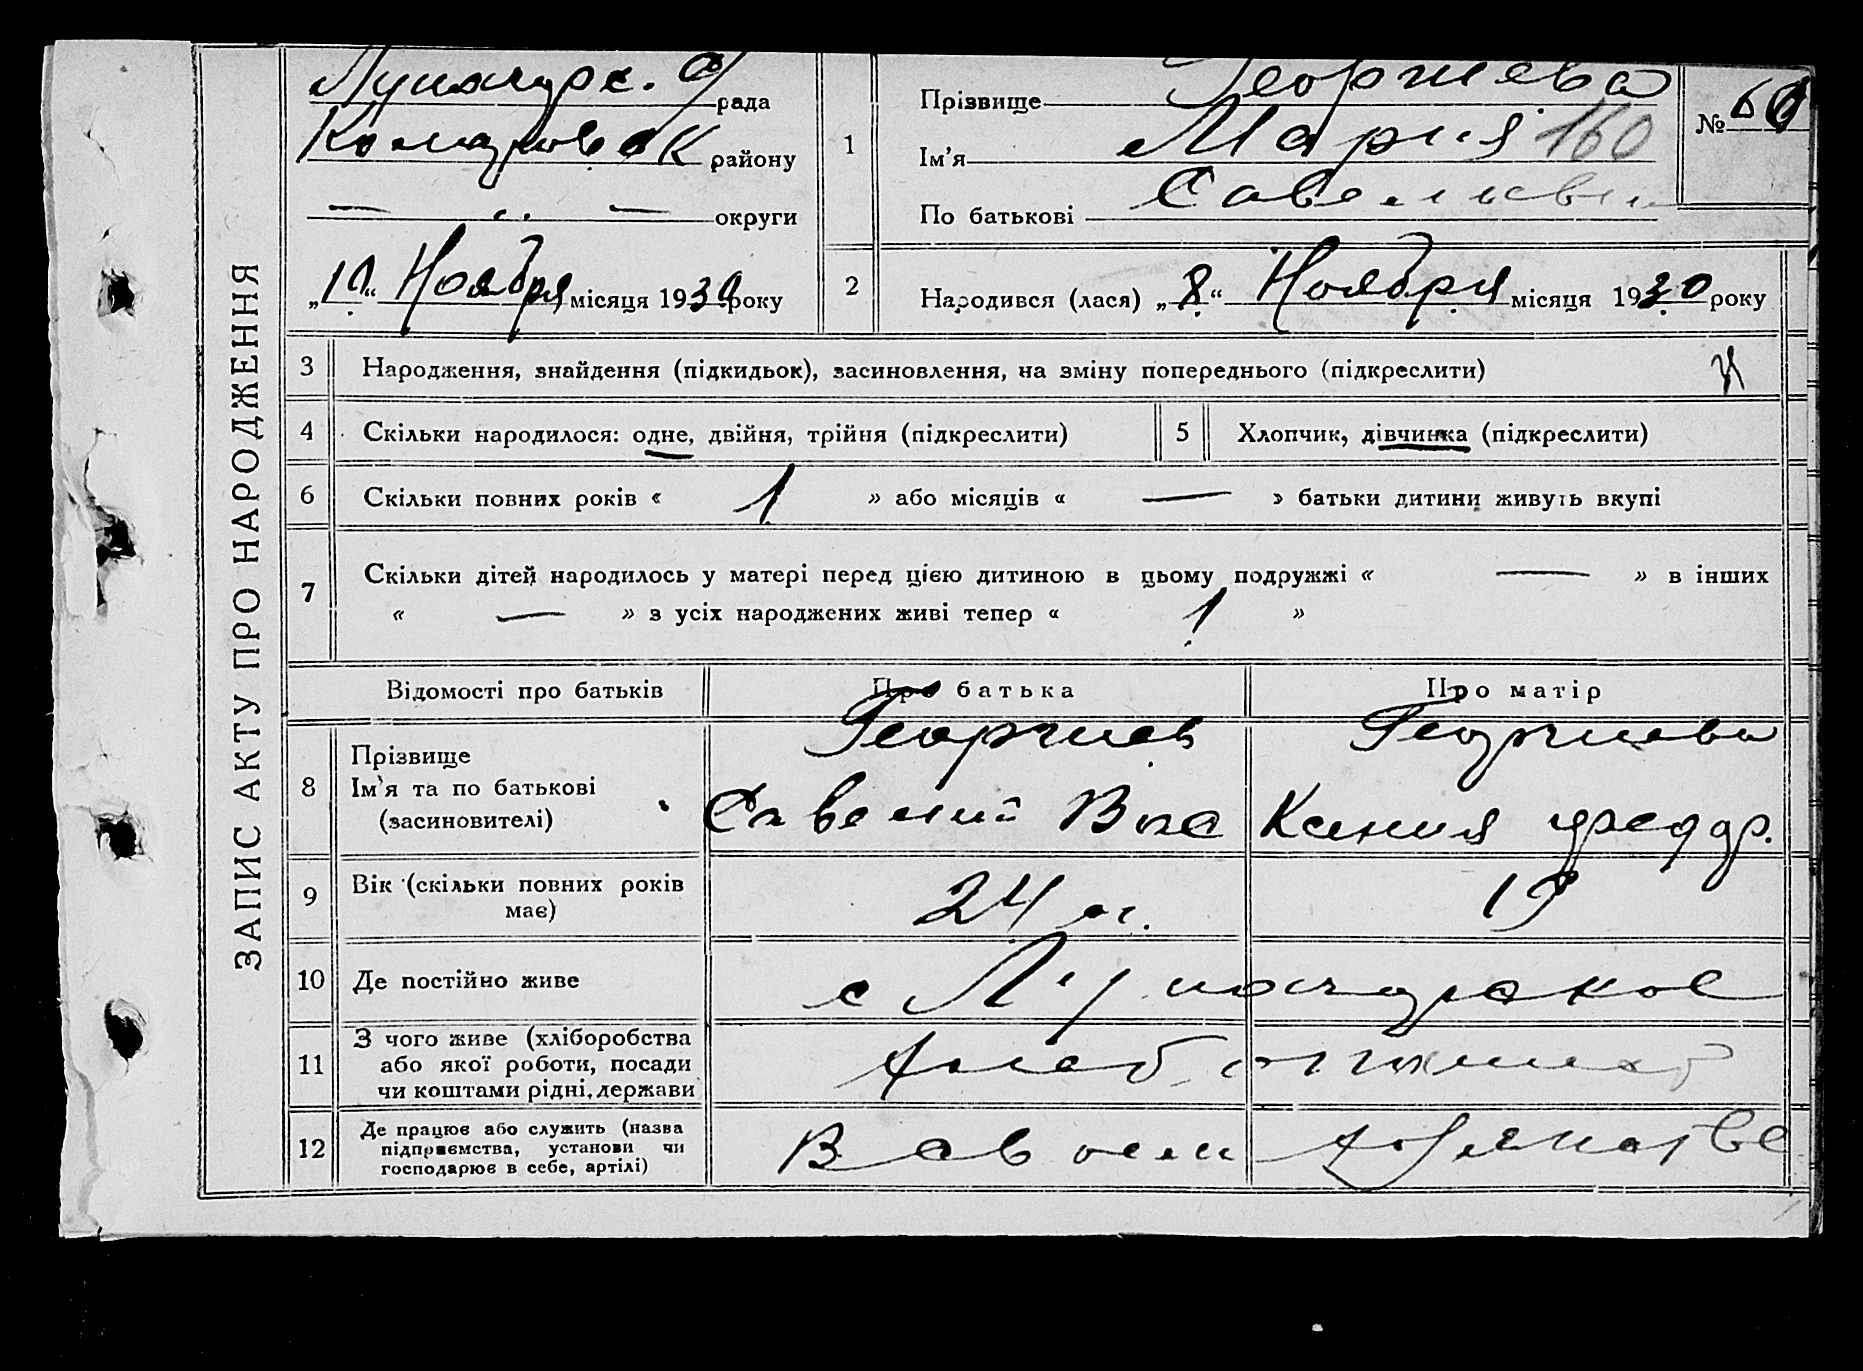 ЗАПИС АКТУ ПРО НАРОДЖЕННЯ
рада
району
— „ — округи
Ноября місяця 1930 року
1
Прізвище Георгиева
Ім'я Мария 160
По батькові
№
2
Народився (лася) „8“ Ноября місяця 1930 року
3 Народження, знайдення (підкидьок), засиновлення, на зміну попереднього (підкреслити)
4 Скільки народилося: одне, двійня, трійня (підкреслити)
5 Хлопчик, дівчинка (підкреслити)
6 Скільки повних років « 1 » або місяців « — » батьки дитини живуть вкупі
7 Скільки дітей народилось у матері перед цією дитиною в цьому подружжі « — » в інших
« — » з усіх народжених живі тепер « 1 »
Відомості про батьків
Про батька
Про матір
8
Прізвище
Ім'я та по батькові
(засиновителі)
Георгиев
Савелий Вас
Георгиева
Ксения Федор.
9
Вік (скільки повних років
має)
24
19
10 Де постійно живе
с
11
З чого живе (хліборобства
або якої роботи, посади
чи коштами рідні, держави
12
Де працює або служить (назва
підприємства, установи чи
господарює в себе, артілі)
В своем хозяйстве